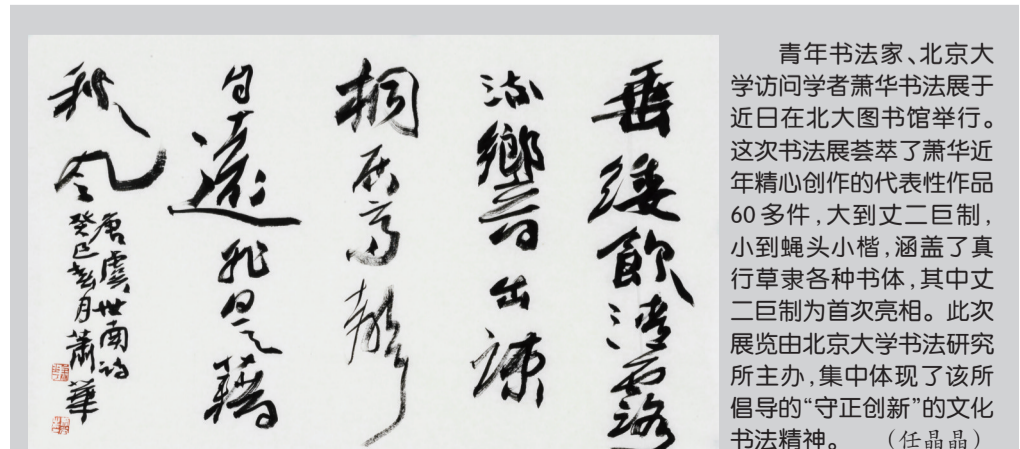 垂緌飲清露
流響出疎
桐居高聲
自遠非是藉
秋風
唐虞世南詩
癸巳月蕭華
青年书法家、北京大
学访问学者萧华书法展于
近日在北大图书馆举行。
这次书法展荟萃了萧华近
年精心创作的代表性作品
60多件，大到丈二巨制，
小到蝇头小楷，涵盖了真
行草隶各种书体，其中丈
二巨制为首次亮相。此次
展览由北京大学书法研究
所主办，集中体现了该所
倡导的“守正创新”的文化
书法精神。 （任晶晶）